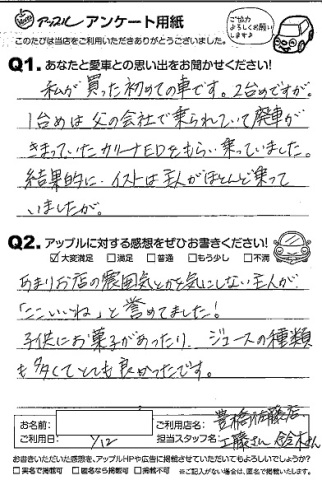 アップル アンケート用紙
このたびは当店をご利用いただきありがとうございました。
ご協力
よろしくお願い
します♪
Q1. あなたと愛車との思い出をお聞かせください!
私が買った初めての車です。2台めですが。
1台めは父の会社で乗られていて廃車が
きまっていたカリーナEDをもらい乗っていました。
結果的に、イストは主人がほとんど乗って
いましたが。
Q2. アップルに対する感想をぜひお書きください!
☑大変満足 □満足 □普通 □もう少し □不満
あまりお店の雰囲気とかを気にしない主人が、
「ここいいね」と誉めてました!
子供にお菓子があったり、ジュースの種類
も多くてとても良かったです。
お名前:
ご利用日: 1/12
ご利用店名: 豊橋佐藤店
担当スタッフ名: 工藤さん 鈴木さん
お書きいただいた感想を、アップルHPや広告に掲載させていただいてもよろしいでしょうか?
□実名で掲載可 □匿名なら掲載可 □掲載不可 ※ご記入がない場合は、匿名で掲載いたします。